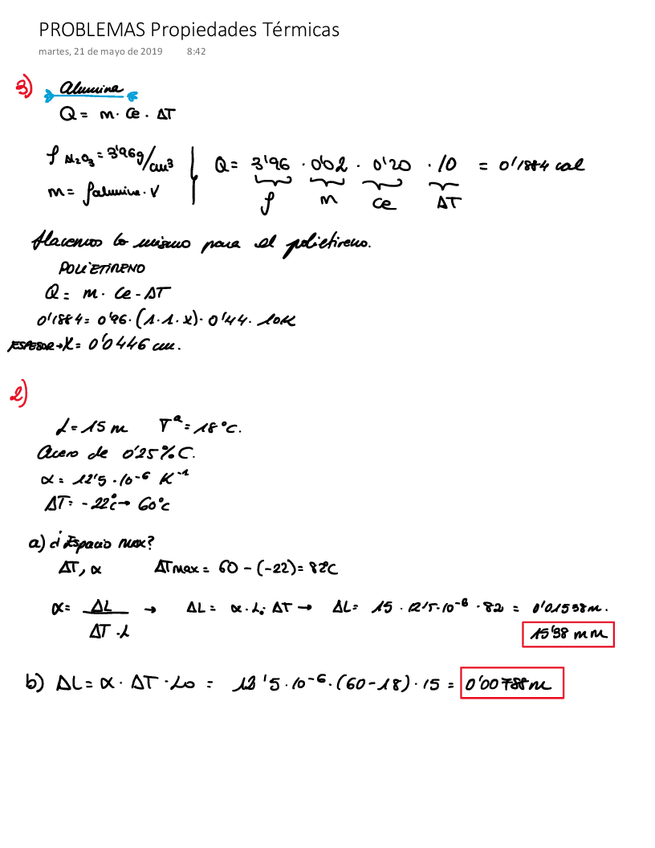 PROBLEMAS Propiedades Térmicas
martes, 21 de mayo de 2019 8:42
3) Alumina
Q = m · Ce · ΔT
ρ Al₂O₃ = 3'96 g/cm³
m = ρalumina · V
Q = 3'96 · 0'02 · 0'20 · 10 = 0'1884 cal
ρ m Ce ΔT
Hacemos lo mismo para el polietireno.
POLIETIRENO
Q = m · Ce · ΔT
0'1884 = 0'96 · (1·1·x) · 0'44 · 10K
ESPESOR → X = 0'0446 cm.
2)
L = 15 m Tª = 18°C.
Acero de 0'25% C.
α = 12'5 · 10⁻⁶ K⁻¹
ΔT = -22°C → 60°C
a) ¿Espacio max?
ΔT, α ΔTmax = 60 - (-22) = 82°C
α = ΔL / ΔT · L → ΔL = α · L · ΔT → ΔL = 15 · 12'5 · 10⁻⁶ · 82 = 0'01538 m.
15'38 mm
b) ΔL = α · ΔT · L₀ = 12'5 · 10⁻⁶ · (60-18) · 15 = 0'00788 m